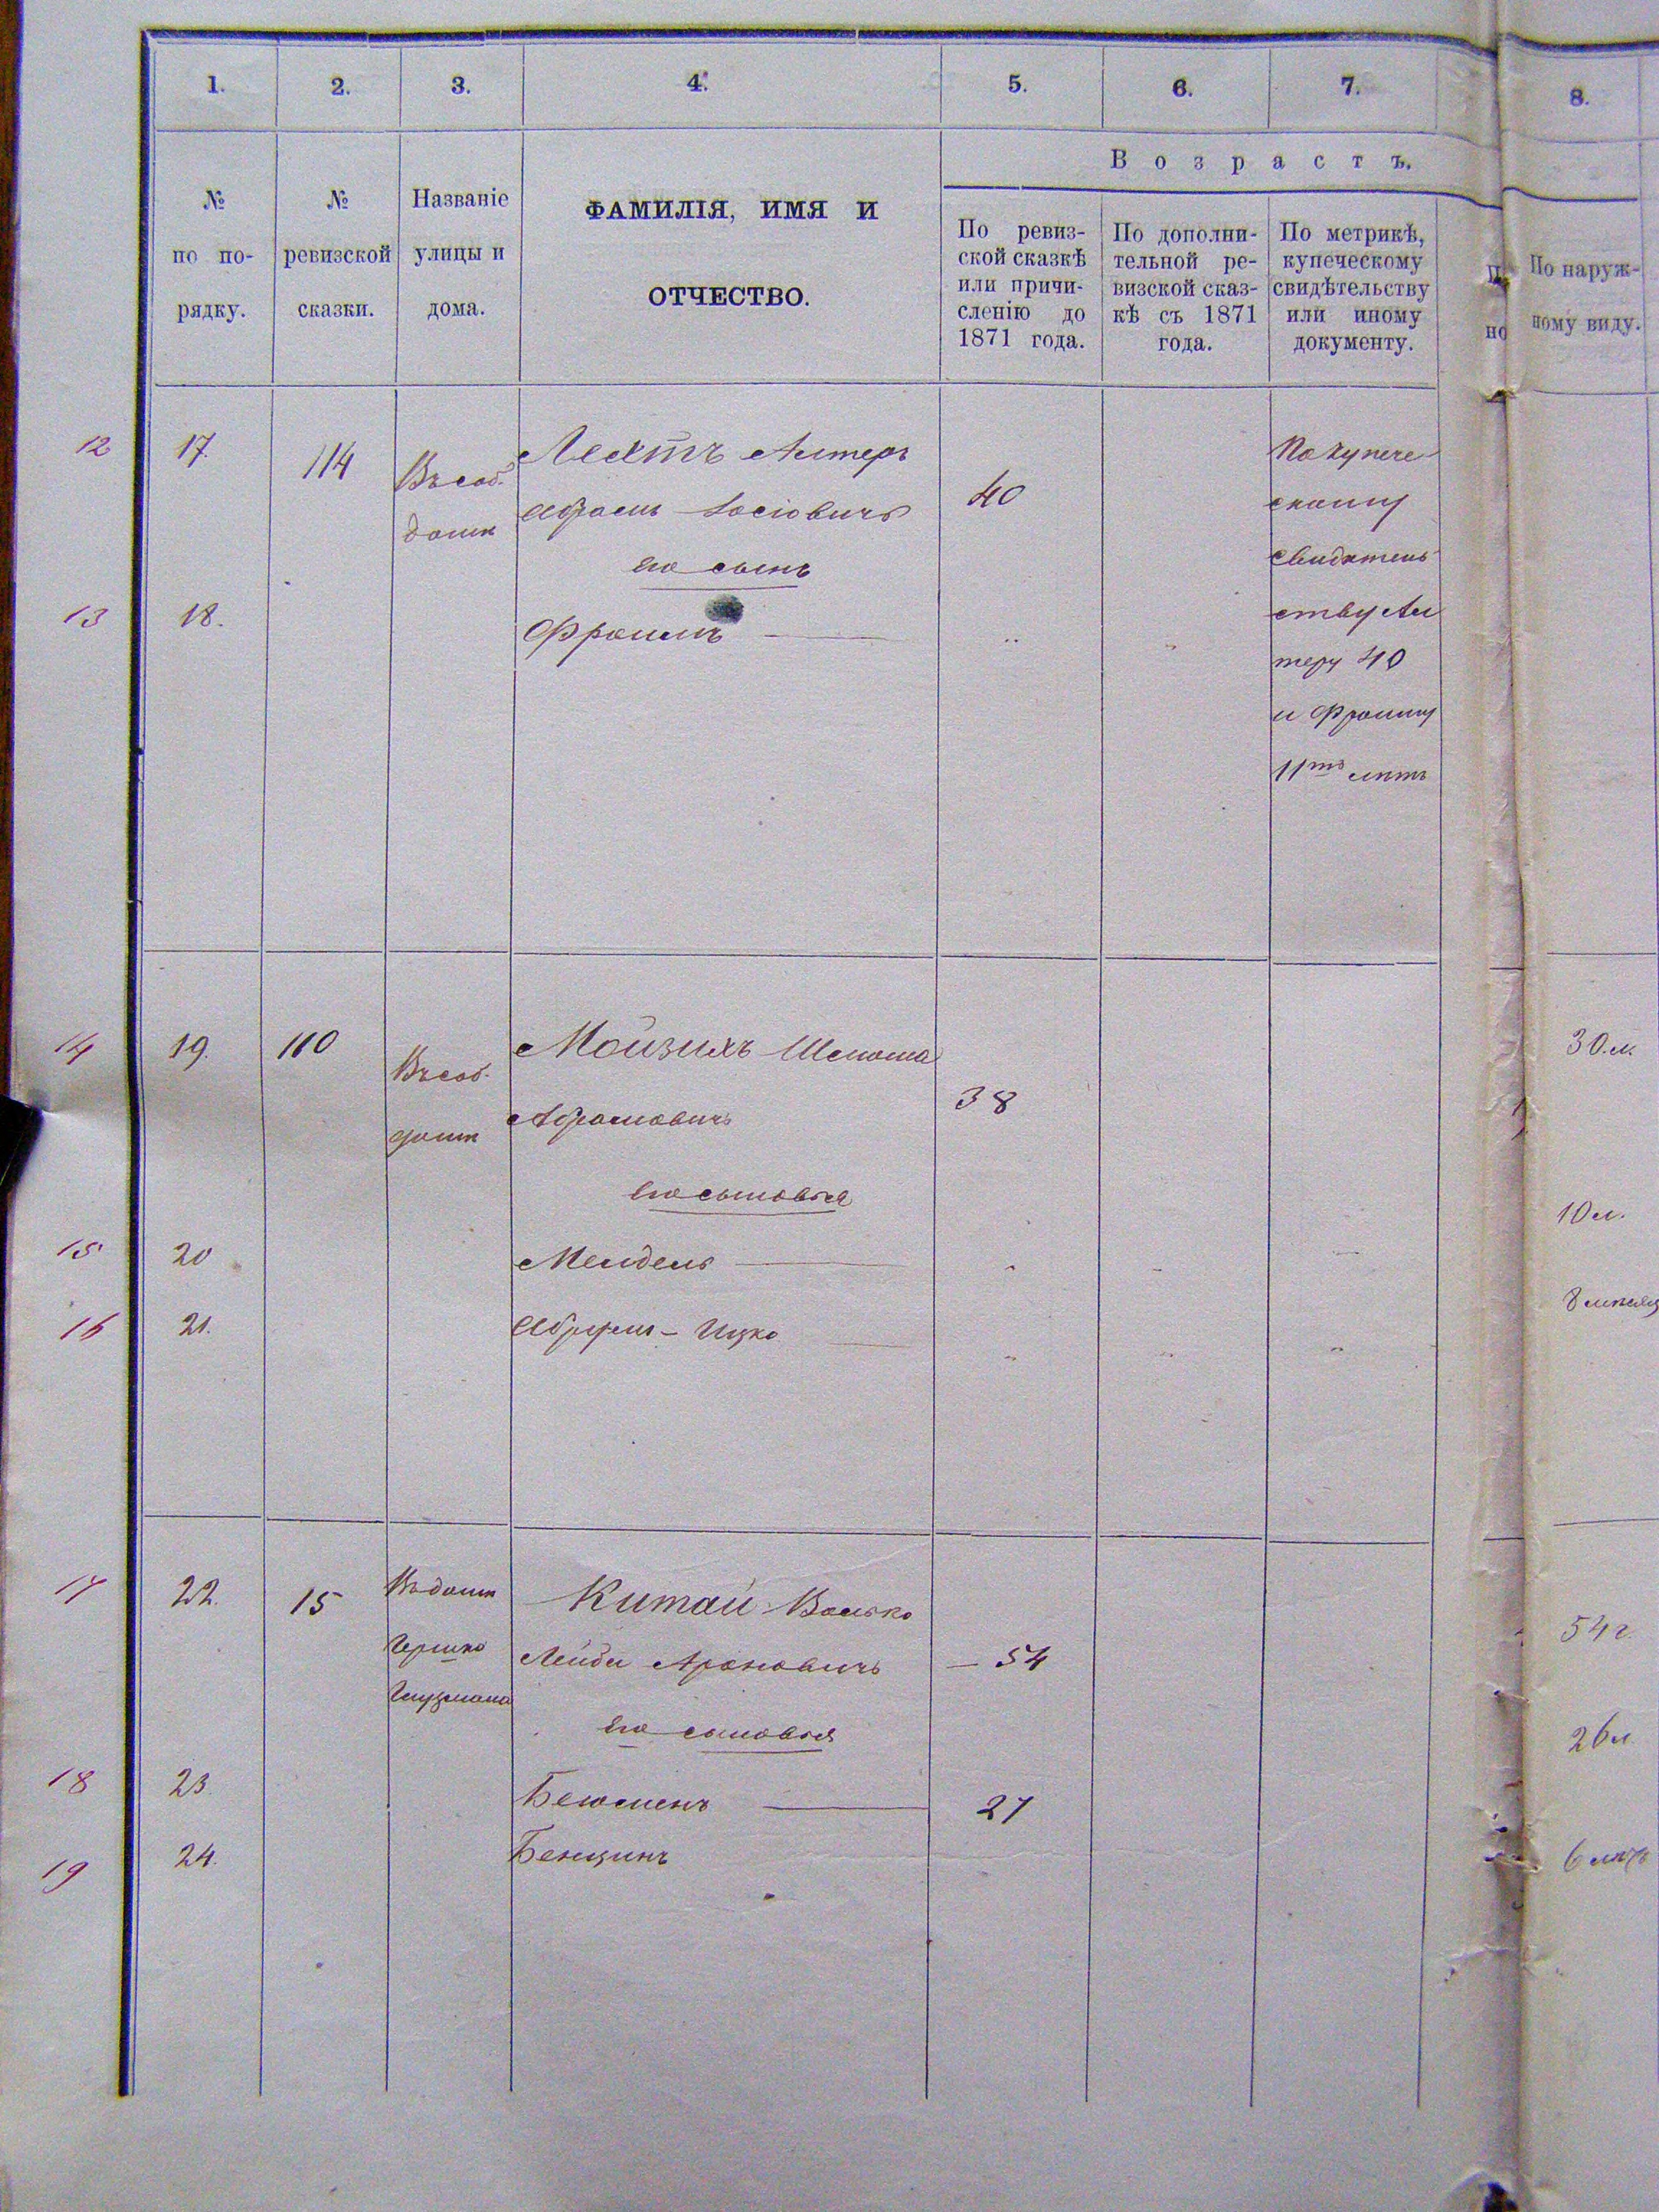 1. 2. 3. 4. 5. 6. 7. 8.
№ по по-рядку.
№ ревизской сказки.
Названіе улицы и дома.
ФАМИЛІЯ, ИМЯ И
ОТЧЕСТВО.
Возрастъ.
По ревиз-
ской сказкѣ
или причи-
сленію до
1871 года.
По дополни-
тельной ре-
визской сказ-
кѣ съ 1871
года.
По метрикѣ,
купеческому
свидѣтельству
или иному
документу.
По наруж-
ному виду.
12 17. 114
Въ соб.
домѣ
Лехтъ Алтеръ
Абрамъ Іосіовичъ
40
его сынъ
13 18.
Фроимъ
По купече
скому
свидѣтель
ству Ал
теру 40
и Фроиму
11ть лѣтъ
14 19. 110
Въ соб.
домѣ
Мойзихъ Шлиома
Абрамовичъ
38
30 л.
его сыновья
15 20
Мендель
10 л.
16 21.
Абрумъ - Ицко
17 22. 15
Въ домѣ
Гершко
Китай Волько
Лейби Ароновичъ
54
54 г.
его сыновья
18 23.
Беюменъ
27
26 л.
19 24.
Бенцинъ
6 лѣтъ